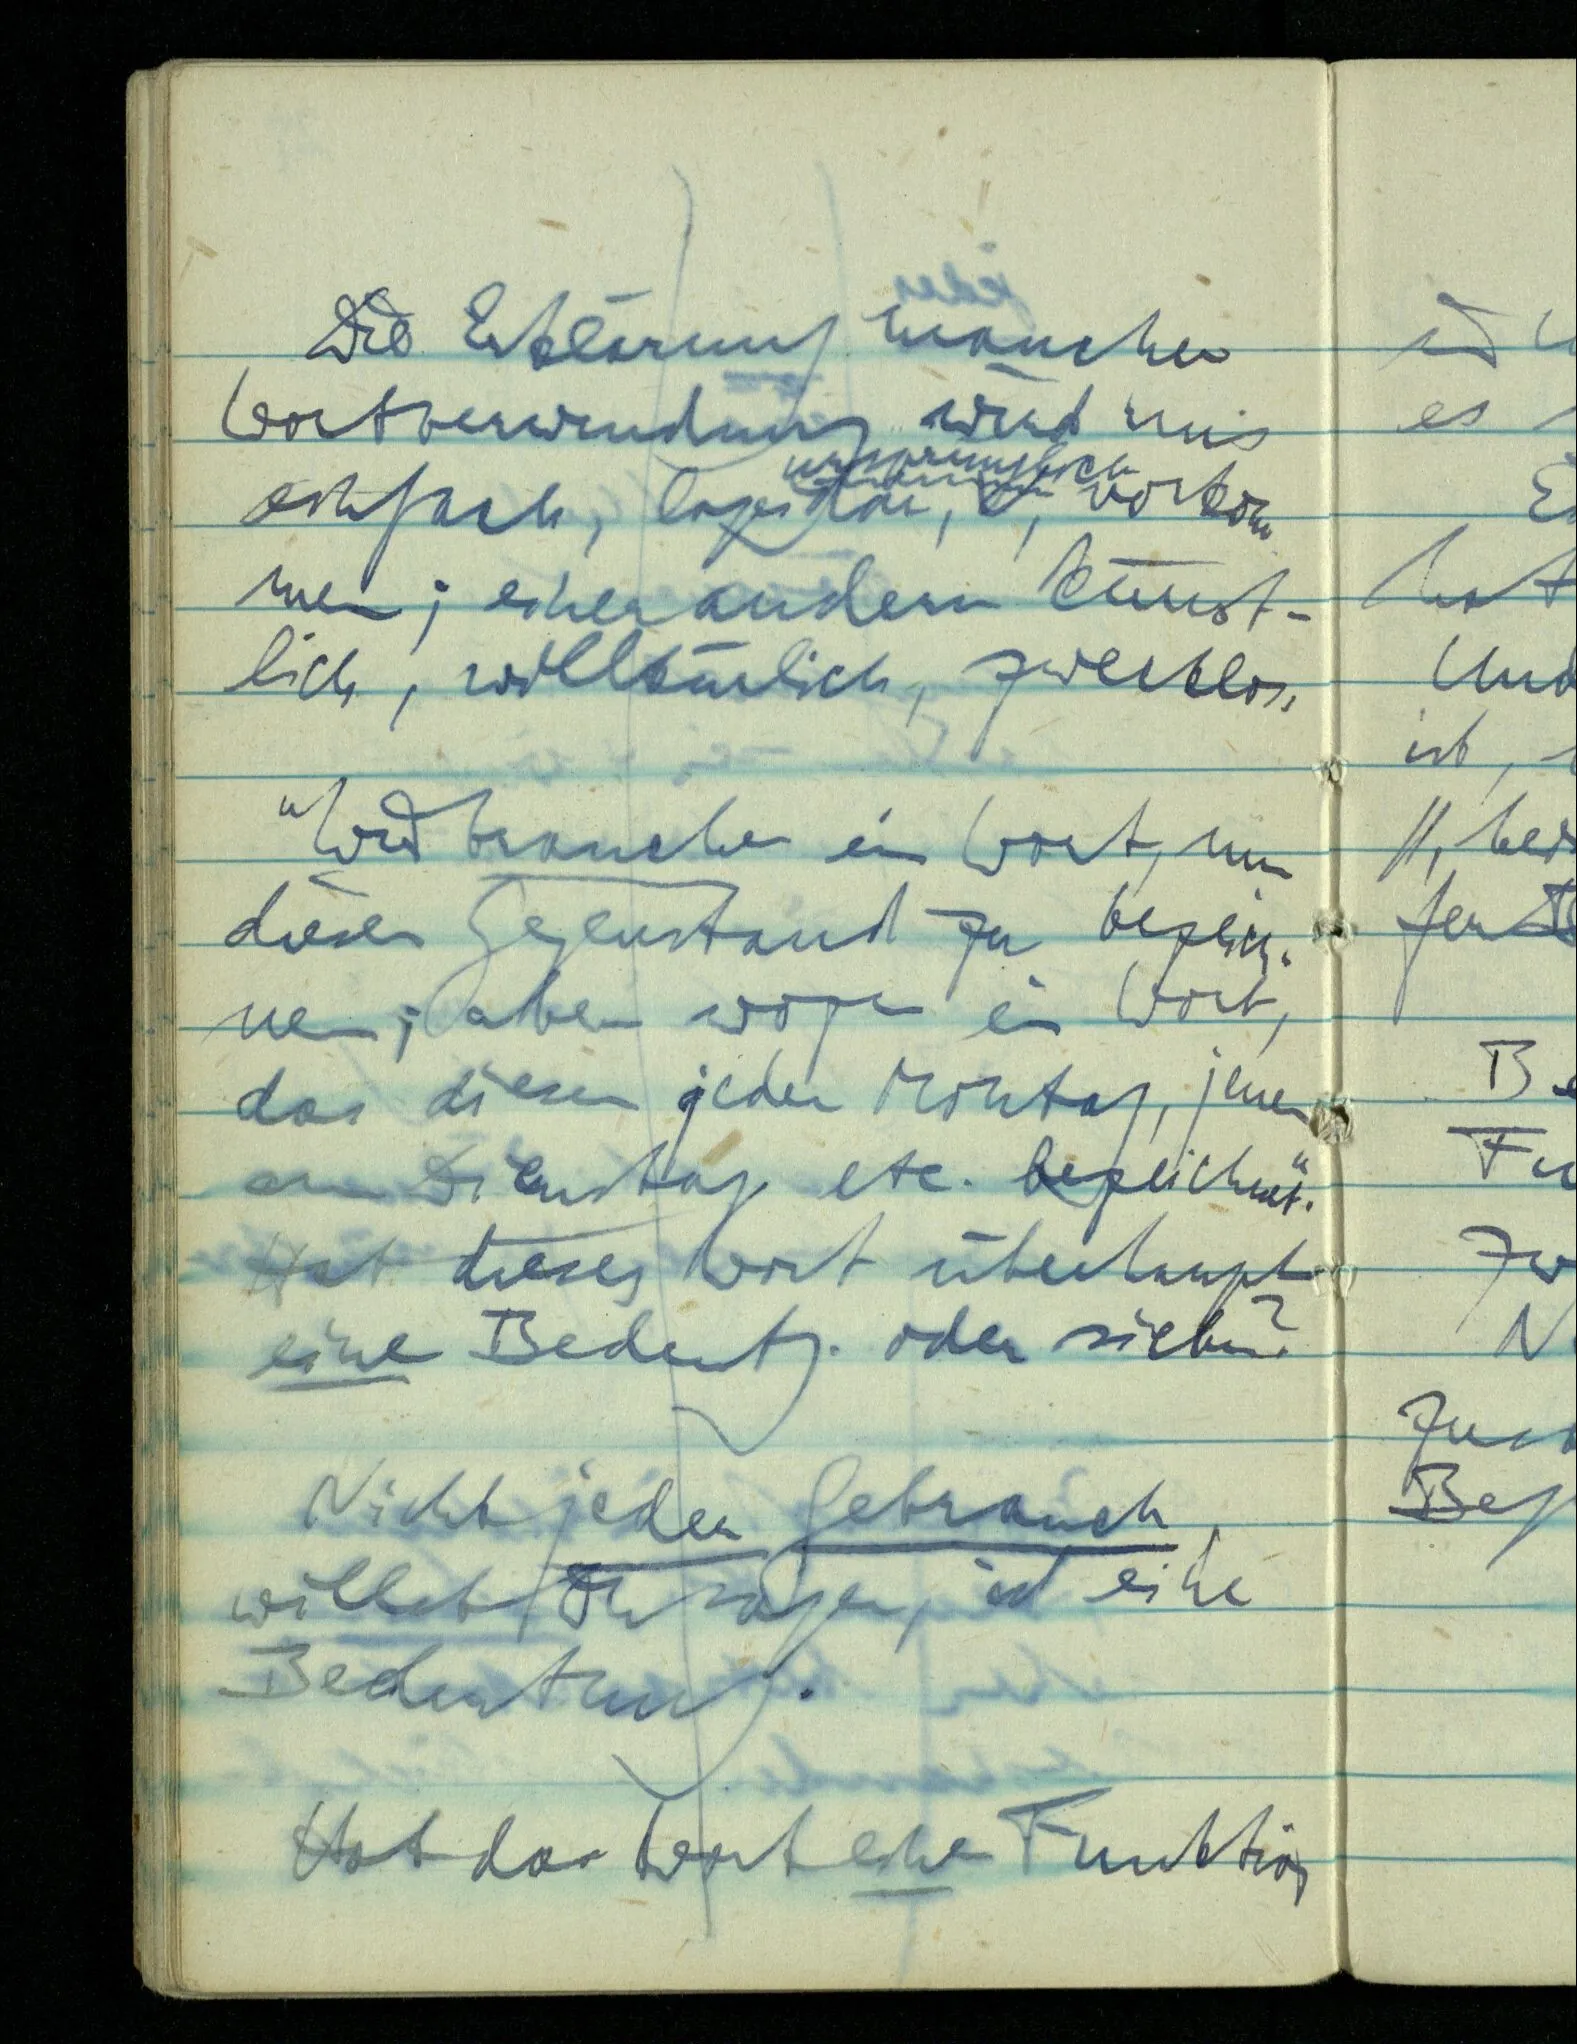 Die Erklärung mancher
Wortverwendung wird uns
ursprünglich
einfach, lapidar, vorkom
men; einer andern künst-
lich, willkürlich, zwecklos.
"Wir brauchen ein Wort, um
diesen Gegenstand zu bezeich-
nen; aber wozu ein Wort,
das diesen jeden Montag, jenen
am Dienstag etc. bezeichnet".
Hat dieses Wort überhaupt
eine Bedeutg. oder sieben?
Nicht jeder Gebrauch,
willst Du sagen, ist eine
Bedeutung.
Hat das Wort eine Funktion
es
hat
Und
ist,
Zu